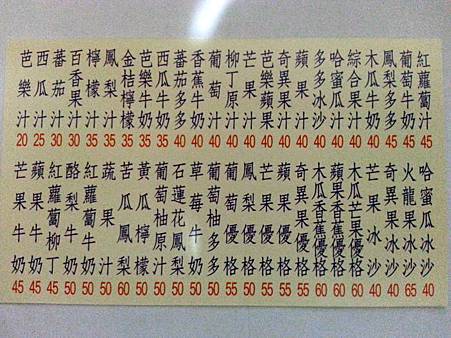 芭樂汁 20
西瓜汁 25
蕃茄汁 30
百香果汁 30
檸檬汁 35
鳳梨汁 35
金桔檸檬 35
芭樂牛奶 35
西瓜牛奶 35
蕃茄多多 40
香蕉牛奶 40
葡萄汁 40
柳丁原汁 40
芒果汁 40
芭樂蘋果 40
奇異果汁 40
蘋果汁 40
多多冰沙 40
哈蜜瓜汁 40
綜合果汁 40
木瓜牛奶 40
鳳梨多多 45
葡萄牛奶 45
紅蘿蔔汁 45
芒果牛奶 45
蘋果牛奶 45
紅蘿蔔柳丁 45
酪梨牛奶 50
紅蘿蔔牛奶 50
蔬果汁 50
苦瓜鳳梨 60
黃瓜檸檬 50
葡萄柚原汁 50
石蓮花鳳梨 50
草莓牛奶 50
葡萄柚多多 50
葡萄優格 55
鳳梨優格 50
芒果優格 55
蘋果優格 55
奇異果優格 55
木瓜香蕉優格 60
蘋果香蕉優格 60
木瓜芒果優格 60
芒果冰沙 40
奇異果冰沙 40
火龍果冰沙 65
哈蜜瓜冰沙 40